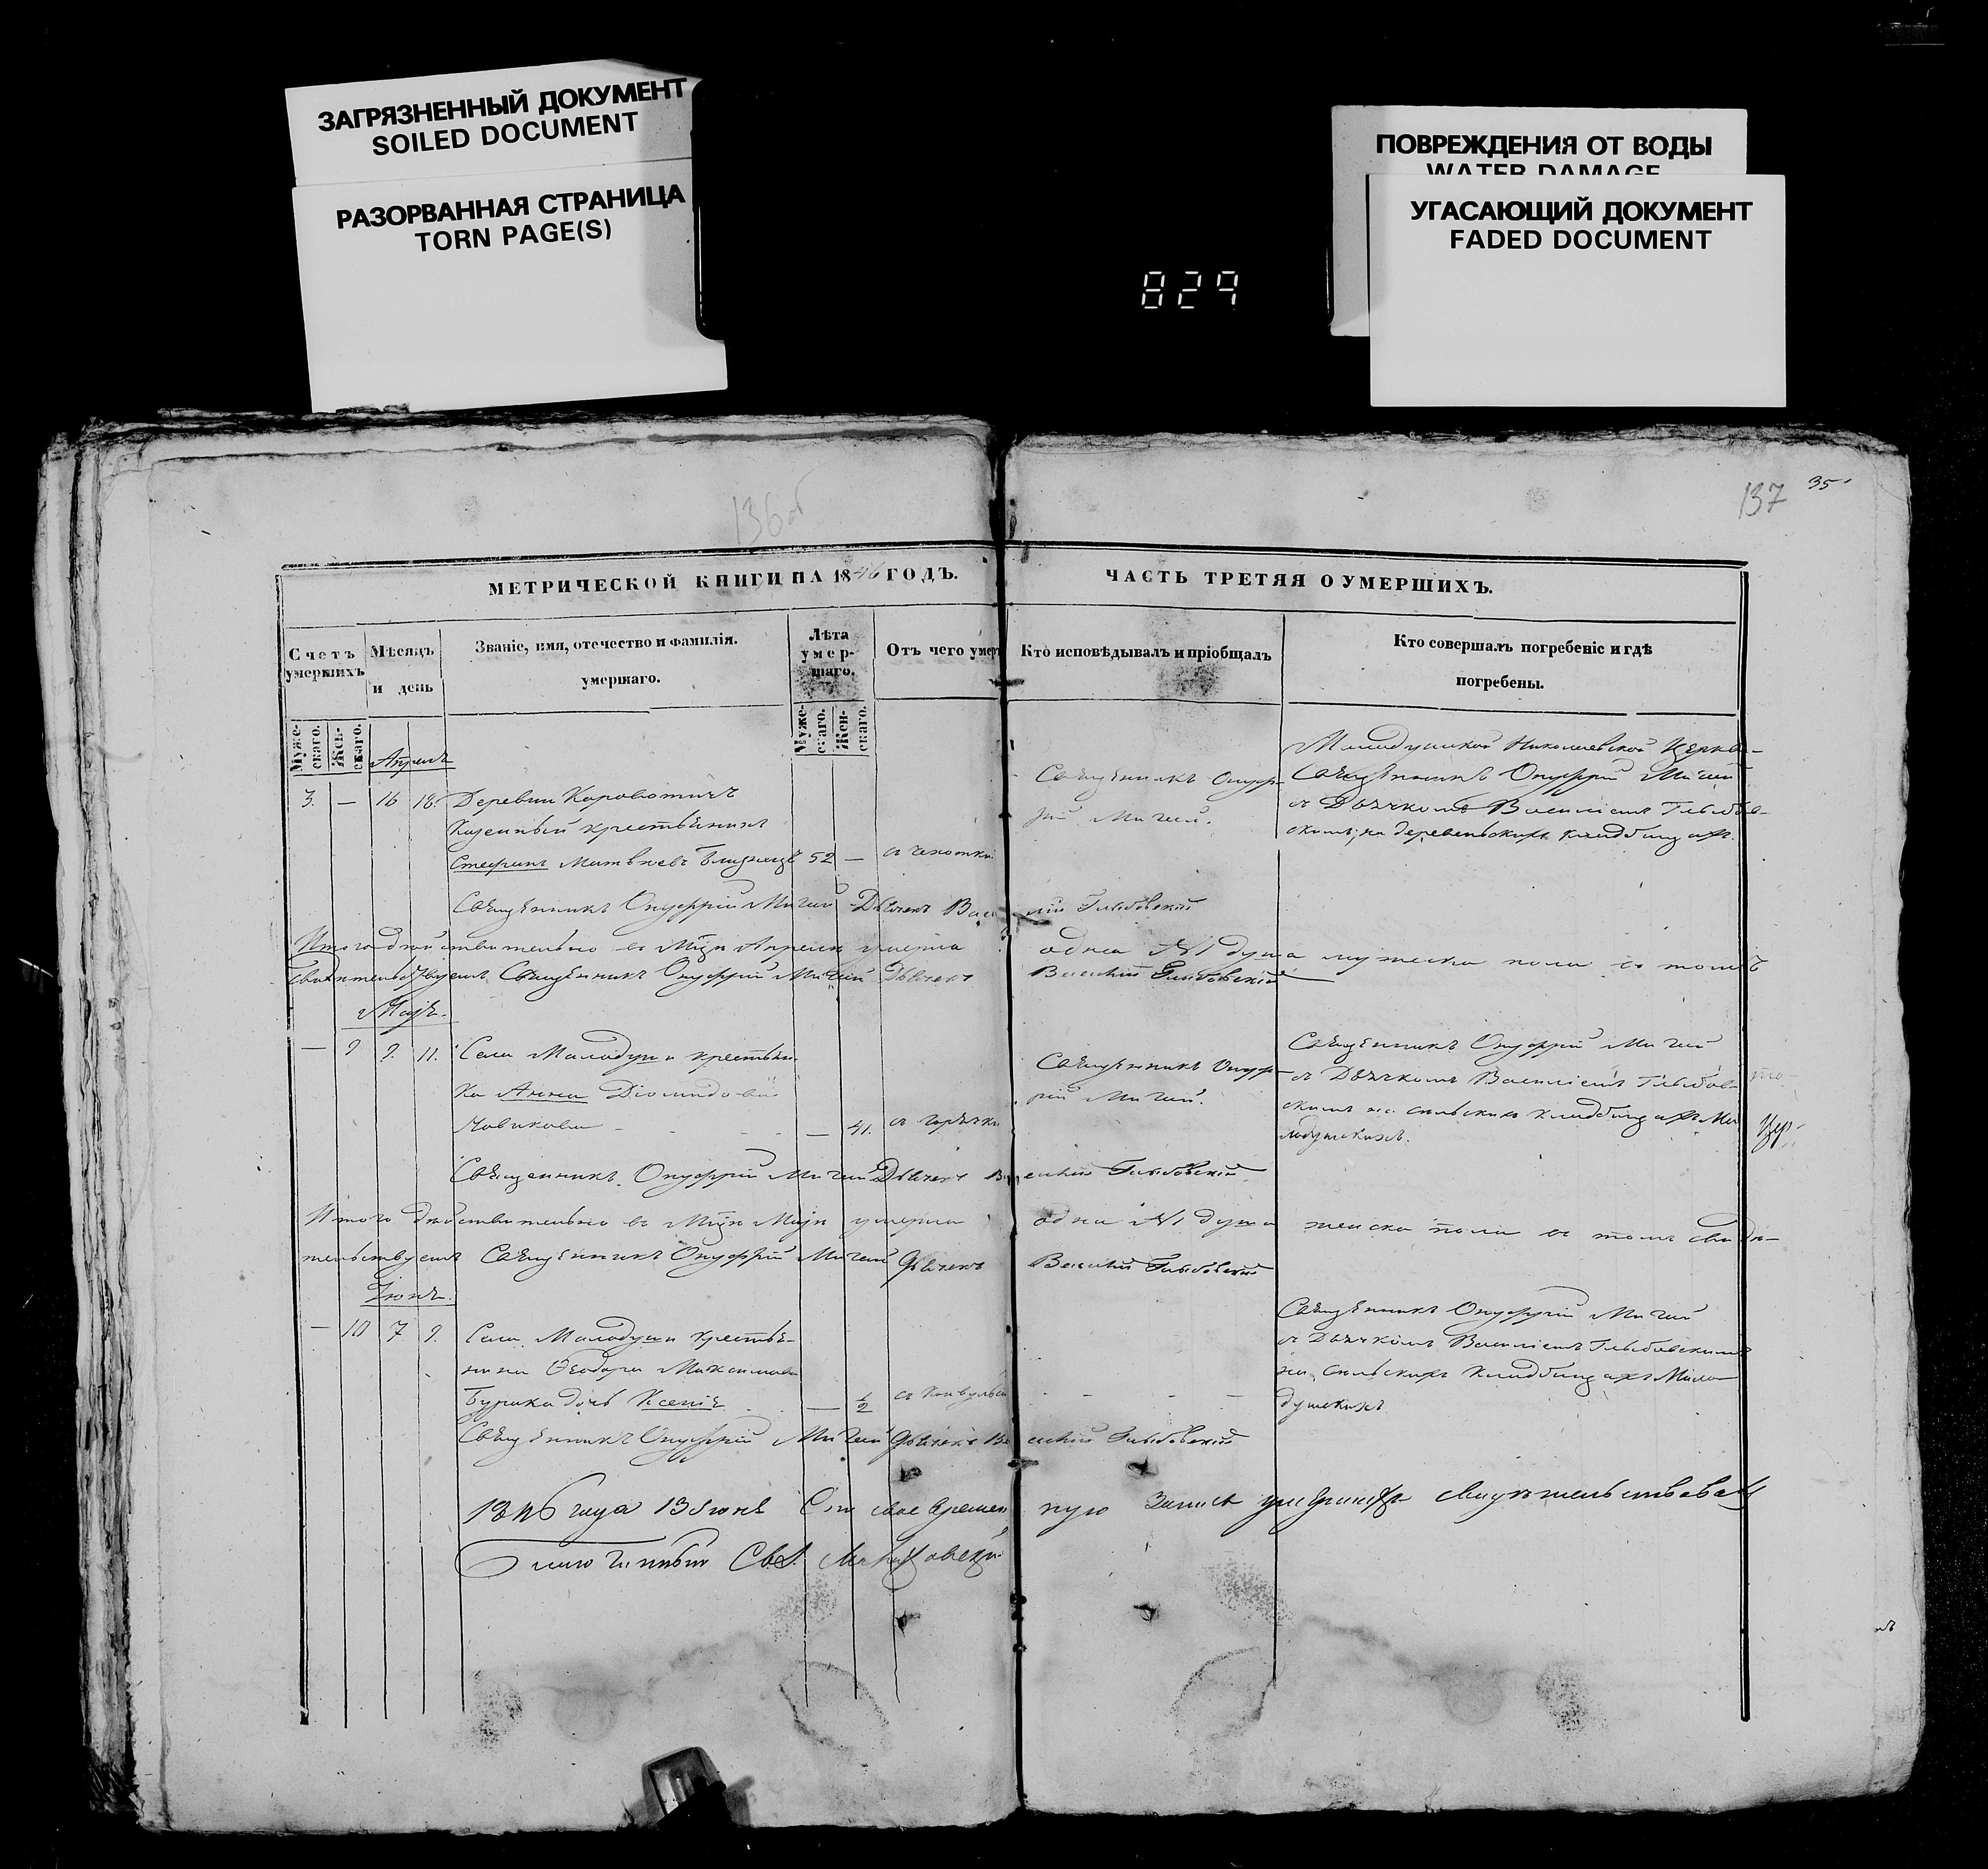 ЗАГРЯЗНЕННЫЙ ДОКУМЕНТ
SOILED DOCUMENT
РАЗОРВАННАЯ СТРАНИЦА
TORN PAGE(S)
ПОВРЕЖДЕНИЯ ОТ ВОДЫ
WATER DAMAGE
УГАСАЮЩИЙ ДОКУМЕНТ
FADED DOCUMENT
829
136об
137 35
МЕТРИЧЕСКОЙ КНИГИ НА 1846 ГОДЪ.
ЧАСТЬ ТРЕТЯЯ О УМЕРШИХЪ.
Счетъ умершихъ
Мѣсяцъ и день
Званіе, имя, отечество и фамилія.
умершаго.
Лѣта умер-шаго.
Отъ чего умер
Кто исповѣдывалъ и пріобщалъ
Кто совершалъ погребеніе и гдѣ
погребены.
Муже-скаго.
Жен-скаго.
Муже-скаго.
Жен-скаго.
Апрель
3. — 16 18. Деревни
Казенный крестьянинъ
Стефанъ Матвѣевъ 52 — съ чехотки
Священникъ Онуф-
рій Мигай.
Николаевской Церкви
Священникъ Онуфрій Мигай
съ Дьячкомъ Василіемъ Глыбов-
скимъ, на деревенскихъ кладбищахъ.
Священникъ Онуфрій Мигай Дьячекъ Василій Глыбовскій
Итого действительно въ Апреле умерла одна №1 душа мужеска пола въ томъ
свидетельствуемъ Священникъ Онуфрій Мигай Дьячекъ Василій Глыбовскій
Май.
— 9 9. 11. Села Малодуши крестьян-
ка Анна
Новикова — 41. съ горячки
Священникъ Онуф-
рій Мигай.
Священникъ Онуфрій Мигай
съ Дьячкомъ Василіемъ Глыбов-
скимъ на сельскихъ кладбищахъ Ма-
лодушскихъ.
Священникъ Онуфрій Мигай Дьячекъ Василій Глыбовскій
Итого действительно въ умерла одна №1 душа женска пола въ томъ свиде-
тельствуемъ Священникъ Онуфрій Мигай Дьячекъ Василій Глыбовскій
Іюнь.
— 10 7 9. Села Малодуши крестья-
нина Ѳеодора Максимова
Бурака дочь Ксенія — 1/2 съ конвульсіи
Священникъ Онуфрій Мигай
съ Дьячкомъ Василіемъ Глыбовскимъ
на сельскихъ кладбищахъ Мало-
душскихъ
Священникъ Онуфрій Мигай Дьячекъ Василій Глыбовскій
1846 года 13 Іюня Сію своевременную запись умершихъ свидѣтельствовалъ
Благочинный